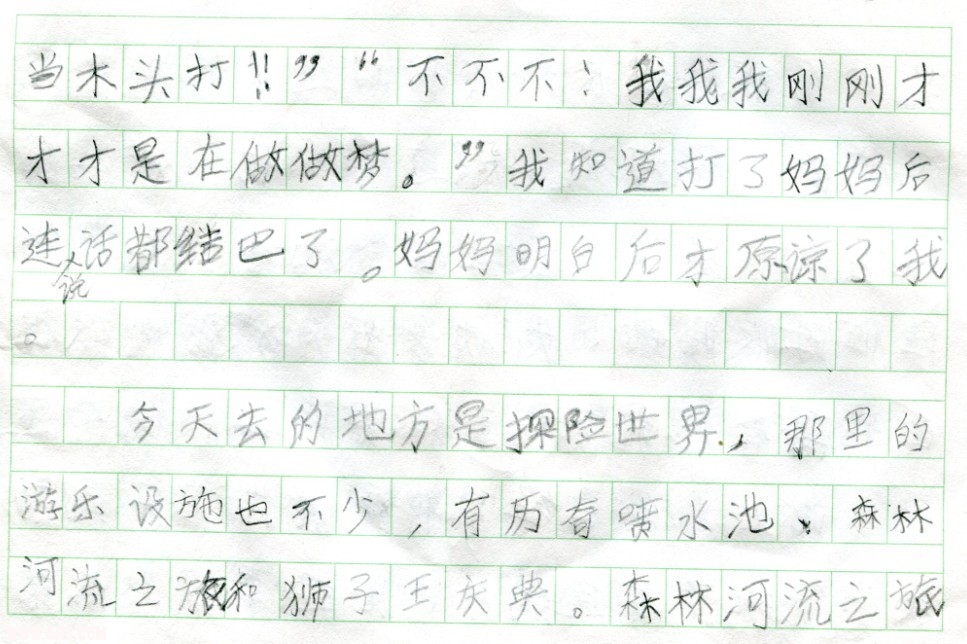 当木头打!!”“不不不!我我我刚刚才
才才是在做做梦。”我知道打了妈妈后
连说话都结巴了。妈妈明白后才原谅了我
。
今天去的地方是探险世界,那里的
游乐设施也不少,有历奇喷水池、森林
河流之旅和狮子王庆典。森林河流之旅